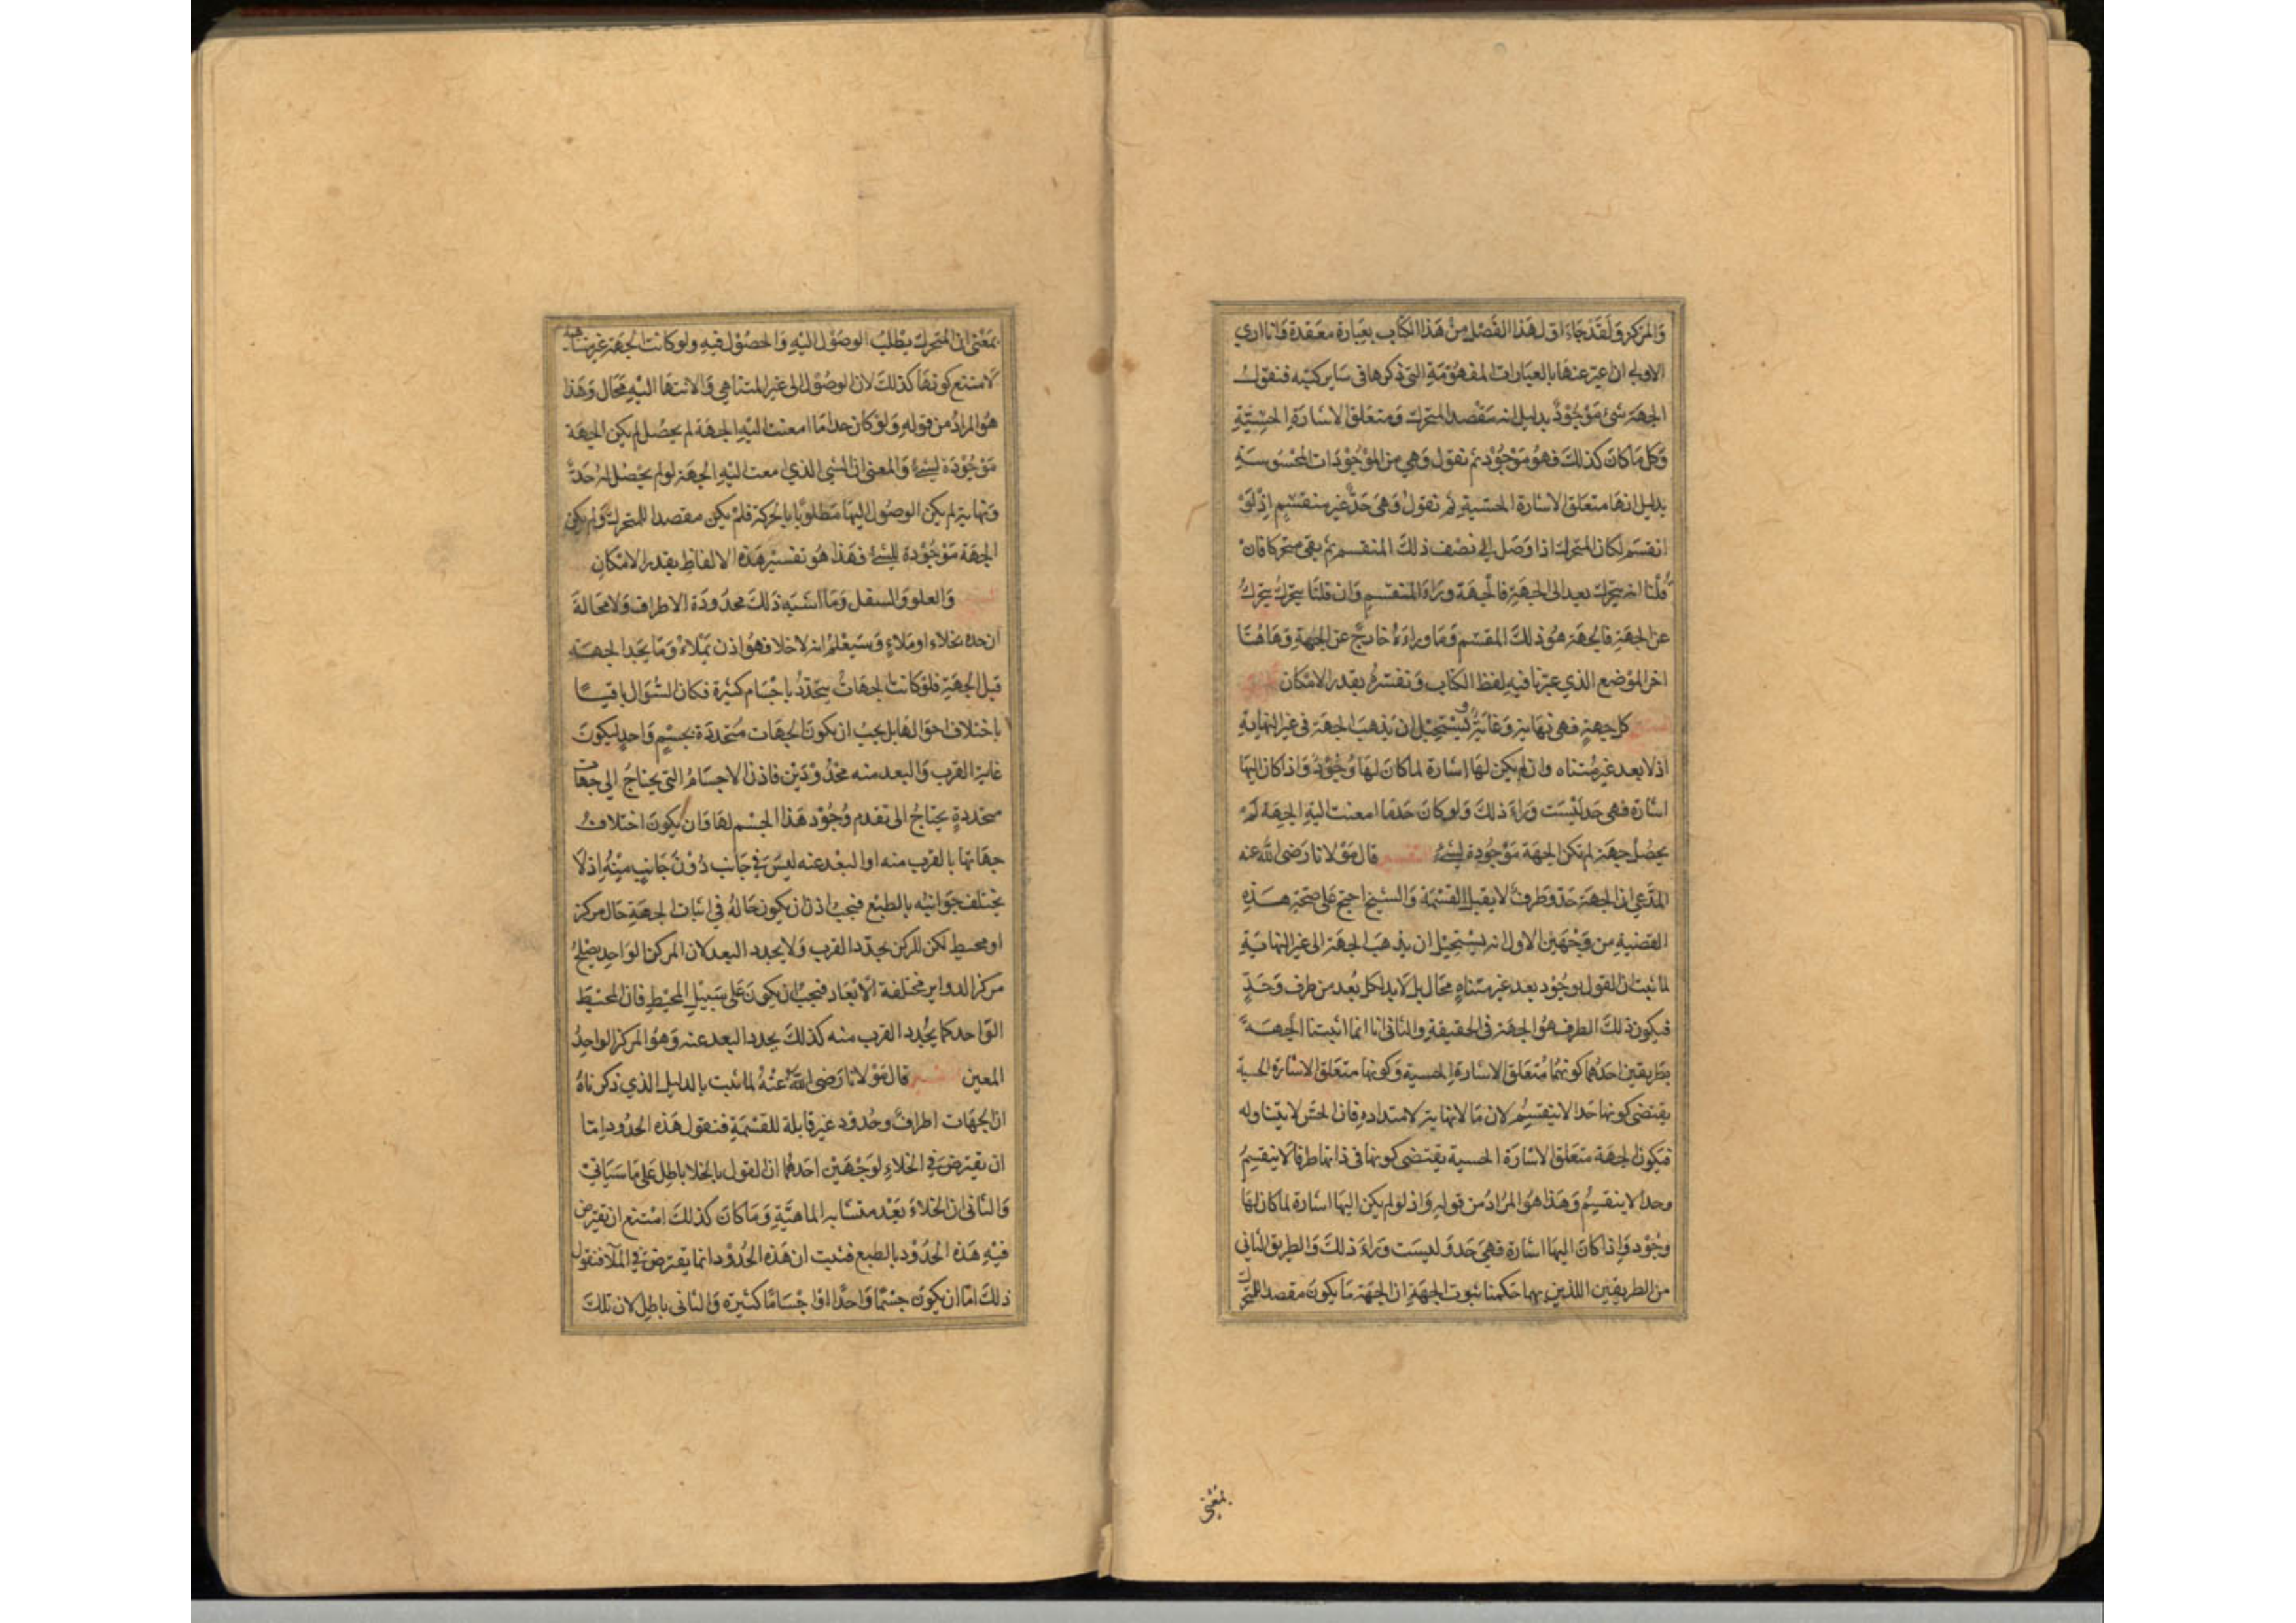 والمركز ولقد جاء اول هذا الفصل من هذا الكتاب بعبارة معقدة وانا اري
الاولي ان اعبر عنها بالعبارات المفهومة التي ذكرها في ساير كتبه فنقول
الجهة شئ موجود بدليل انه مقصد المتحرك ومتعلق الاشارة الحسية
وكل ما كان كذلك فهو موجود ثم نقول وهي من الموجودات المحسوسة
بدليل انها متعلق الاشارة الحسية ثم نقول وهي حد غير منقسم اذ لو
انقسم لكان المتحرك اذا وصل الي نصف ذلك المنقسم ثم بقي متحركا فان
قلنا انه يتحرك بعد الى الجهة فالجهة وراء المنقسم وان قلنا يتحرك يتحرك
عن الجهة فالجهة هو ذلك المقسم وما وراءه خارج عن الجهة وهاهنا
اخر الموضع الذي عبرنا فيه لفظ الكتاب ونفسره بقدر الامكان
كل جهة فهي نهاية وغاية ويستحيل ان يذهب الجهة في غير النهاية
اذ لا بعد غير متناه وان لم يكن لها اشارة لما كان لها وجود واذا كان اليها
اشارة فهي حد ليست وراء ذلك ولو كان حد ما امعنت اليه الجهة لم
يحصل جهة لم تكن الجهة موجودة لشئ التفسير قال مولانا رضى الله عنه
المدعي ان الجهة حد وطرف لا يقبل القسمة والشيخ احتج على صحة هذه
القضية من وجهين الاول انه يستحيل ان يذهب الجهة الى غير النهاية
لما ثبت ان القول بوجود بعد غير متناه محال بل لا بد لكل بعد من طرف وحد
فيكون ذلك الطرف هو الجهة في الحقيقة والثاني انا انما اثبتنا الجهة
بطريقين احدهما كونهما متعلق الاشارة الحسية وكونها متعلق الاشارة الحسية
يقتضي كونها حدا لا ينقسم لان ما لا نهاية لامتداده فان الحس لا يتناوله
فيكون الجهة متعلق الاشارة الحسية يقتضي كونها في ذاتها طرفا لا ينقسم
وحدا لا ينقسم وهذا هو المراد من قوله واذ لو لم يكن اليها اشارة لما كان لها
وجود واذا كان اليها اشارة فهي حد وليست وراء ذلك والطريق الثاني
من الطريقين اللذين بهما حكمنا بثبوت الجهة ان الجهة ما يكون مقصد المتحرك
بمعنى
بمعنى ان المتحرك يطلب الوصول اليه والحصول فيه ولو كانت الجهة غير متناهية
لامتنع كونها كذلك لان الوصول الى غير المتناهي والانتهاء اليه محال وهذا
هو المراد من قوله ولو كان حد ما امعنت اليه الجهة لم يحصل لم يكن الجهة
موجودة لشئ والمعنى ان الشي الذي امعت اليه الجهة لو لم يحصل له حد
ونهاية لم يكن الوصول اليها مطلوبا بالحركة فلم يكن مقصدا للمتحرك ولم يكن
الجهة موجودة للشئ فهذا هو تفسير هذه الالفاظ بقدر الامكان
والعلو والسفل وما اشبه ذلك محدودة الاطراف ولا محالة
ان حده بخلاء او ملاء وستعلم انه لا خلا فهو اذن بملاء وما يحد الجهة
قبل الجهة فلو كانت الجهات يتحدد باجسام كثيرة فكان السؤال باقيا
باختلاف احوالها بل يجب ان يكون الجهات متحددة بجسم واحد ليكون
غاية القرب والبعد منه محدودين فاذن الاجسام التي يحتاج الي جهات
متحددة يحتاج الى تقدم وجود هذا الجسم لها وان يكون اختلاف
جهاتها بالقرب منه او البعد عنه ليس في جانب دون جانب منه اذ لا
يختلف جوانبه بالطبع فيجب اذن ان يكون حاله في اثبات الجهة حال مركز
او محيط لكن المركز يحدد القرب ولا يحدد البعد لان المركز الواحد يصلح
مركز الدواير مختلفة الابعاد فيجب ان يكون على سبيل المحيط فان المحيط
الواحد كما يحدد القرب منه كذلك يحدد البعد عنه وهو المركز الواحد
المعين التفسير قال مولانا رضى الله عنه لما ثبت بالدليل الذي ذكرناه
ان الجهات اطراف وحدود غير قابلة للقسمة فنقول هذه الحدود اما
ان يفترض في الخلاء لوجهين احدهما ان القول بالخلا باطل على ما سياتي
والثاني ان الخلاء بعد متشابه الماهية وما كان كذلك امتنع ان يفترض
فيه هذه الحدود بالطبع فثبت ان هذه الحدود انما يفترض في الملا فنقول
ذلك اما ان يكون جسما واحدا او اجساما كثيرة والثاني باطل لان تلك